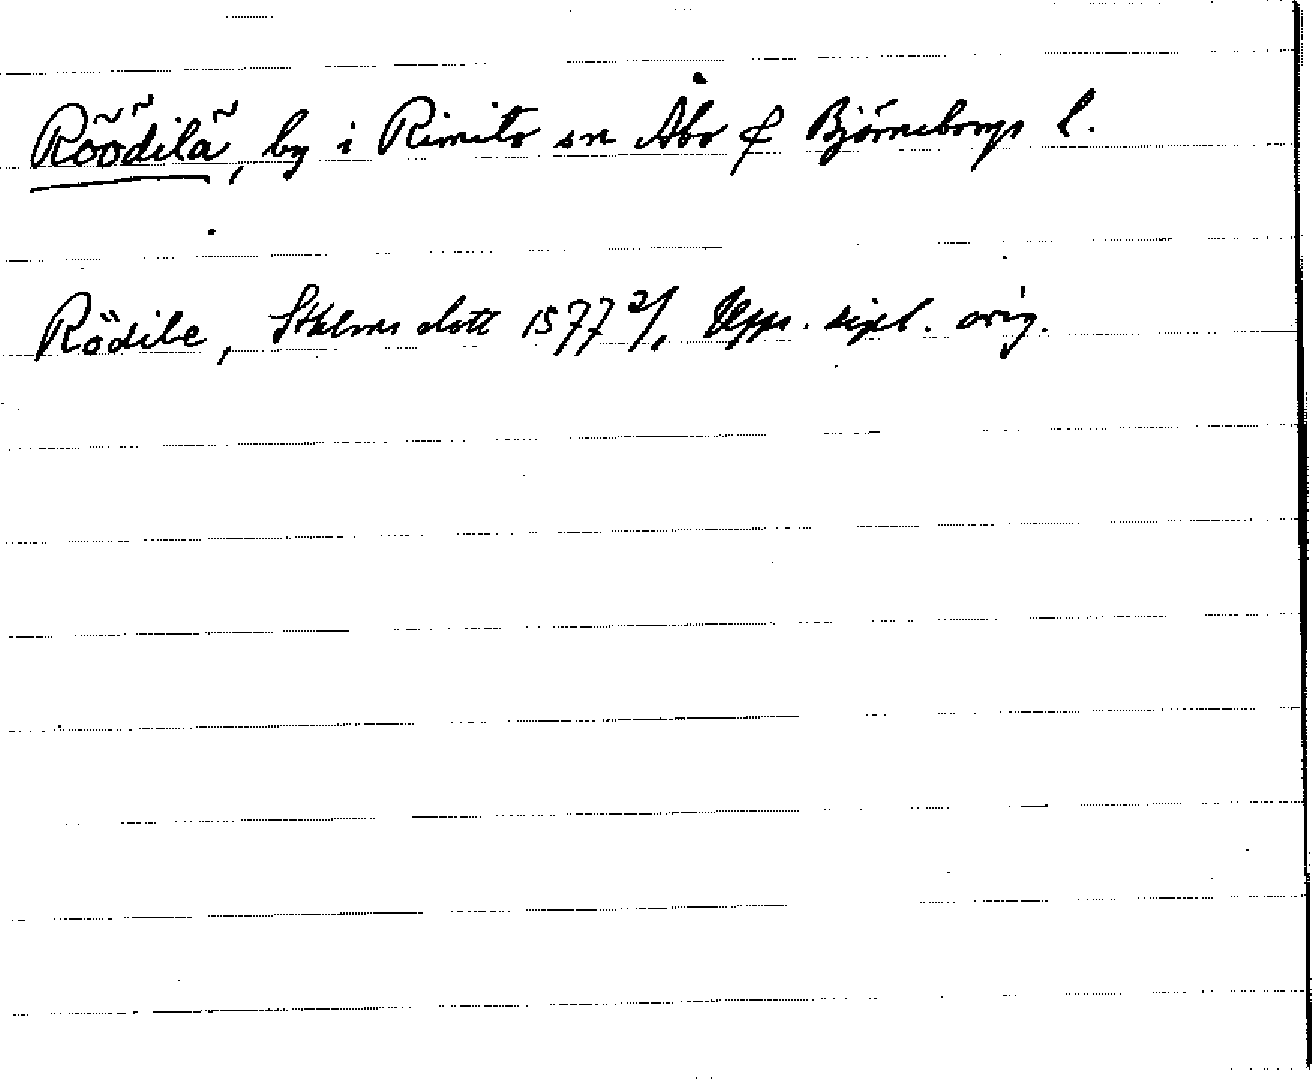 Röödilä, by i Rimito sn Åbo & Björneborgs l.
Rödile, Sthlms slott 1577 2/1, Upps. dipl. orig.